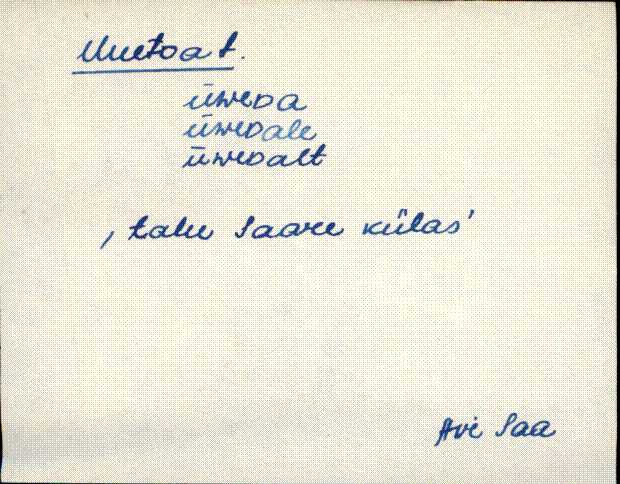 Uuetoa t.
ūweDa
ūweDale
ūweDalt
, talu Saare külas'
Ave Saa